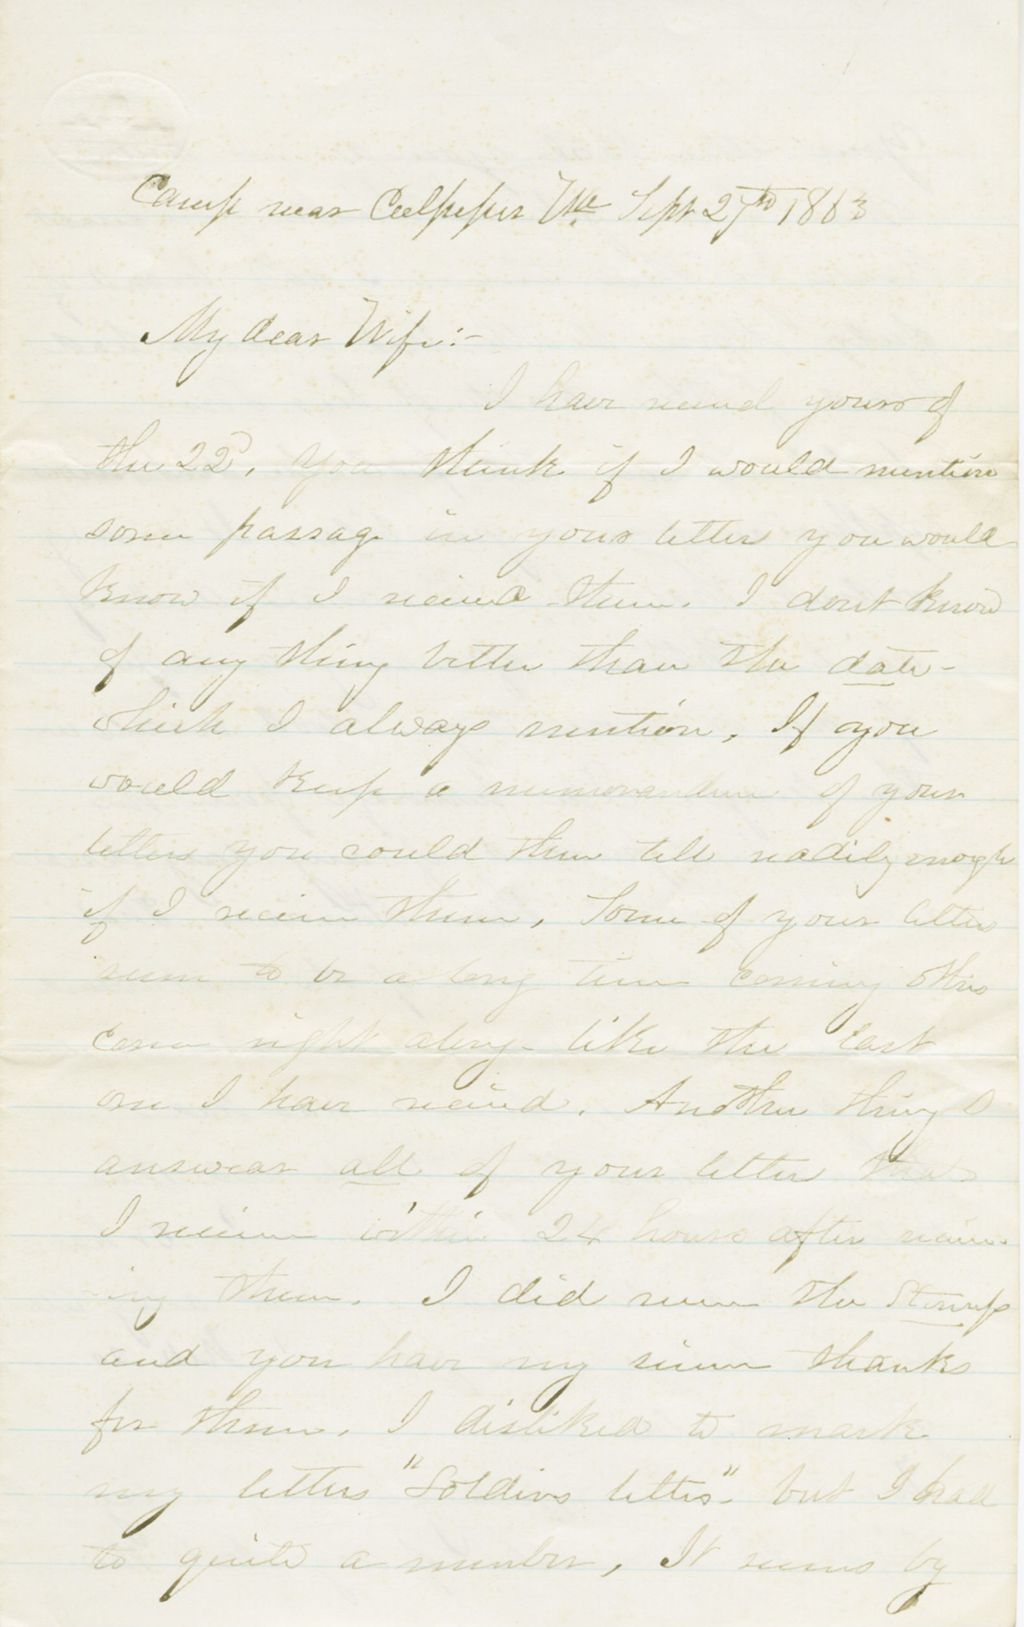 Camp near Culpeper Va. Sept 27th 1863
My dear Wife:-
I have recieved yours of
the 22d. You think if I would mention
some passage in your letter you would
know if I recieved them. I dont know
of any thing better than the date-
which I always mention. If you
would keep a memorandum of your
letters you could then tell readily enough
if I recieve them. Some of your letters
seem to be a long time coming others
come right along like the last
one I have recieved. Another thing I
answear all of your letters that
I recieve within 24 hours after reciev-
ing them. I did recieve the stamps
and you have my sincere thanks
for them. I disliked to mark
my letters "Soldiers letters" but I had
to quite a number, It seems by